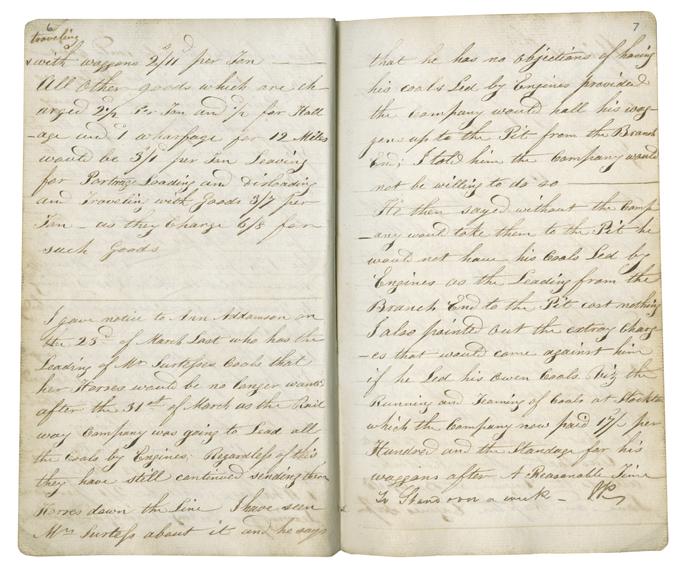 6
traveling
with waggons 2/11 per Ton
All Other goods which are ch-
arged 2½ Pr Ton and ½ for Hall-
age and 1 wharfage for 12 Miles
would be 3/1 per Ton Leaving
for Portrage Loading and Disloading
and Traveling with Goods 3/7 per
Ton - as they Charge 6/8 for
such Goods
I gave notice to Ann Addamson on
the 23rd of March Last who has the
Leading of Mr Surtefses Coals that
her Horses would be no longer wanted
after the 31st of March as the Rail
way Company was going to Lead all
the Coals by Engines; Regardlefs of this
they have still continued sending their
Horses down the Line I have seen
Mrs Surtefs about it and he says
7
that he has no Objections of having
his coals Led by Engines provided
the Company would hall his wag-
gons up to the Pit from the Branch
End; I told him the Company would
not be willing to do so
He then sayed without the Comp
-any would take them to the Pit he
would not have his Coals Led by
Engines as the Leading from the
Branch End to the Pits cost nothing
I also pointed Out the extray Charg
-es that would come against him
if he Led his Owen Coals Viz the
Running and Teaming of Coals at Stockton
which the Company now paid 17/- per
Hundred and the Standage for his
waggons after A Reasonable Time
To Stand over a week -